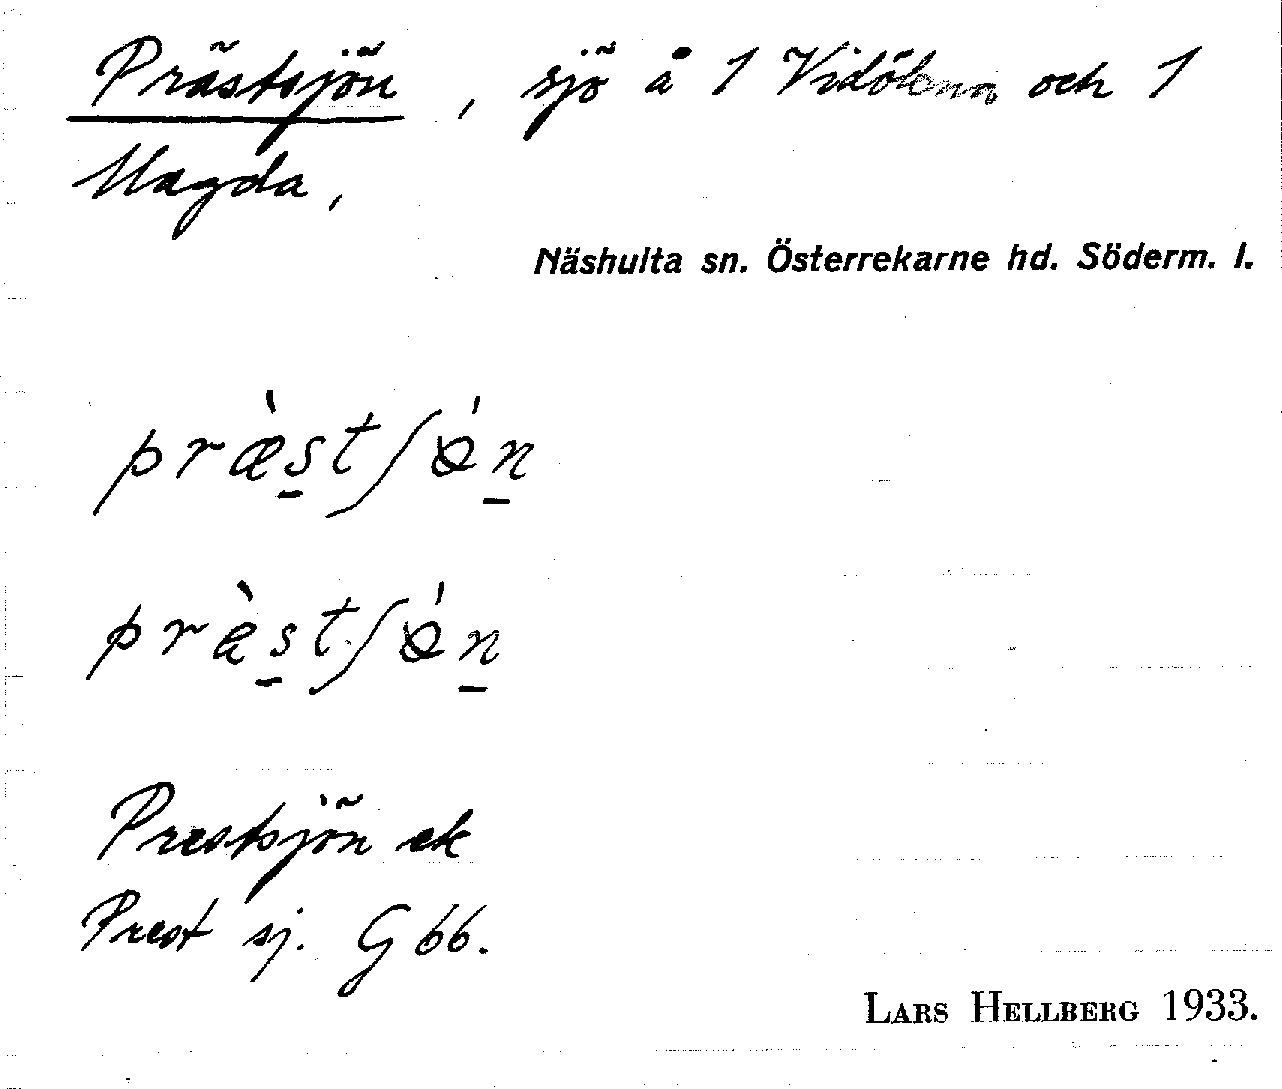 Prästsjön, sjö å 1 Vidökna och 1
Magda,
Näshulta sn. Österrekarne hd. Söderm. l.
præ̀stʃǿn
prὲstʃǿn
Prestsjön ek
Prest sj. G 66.
LARS HELLBERG 1933.